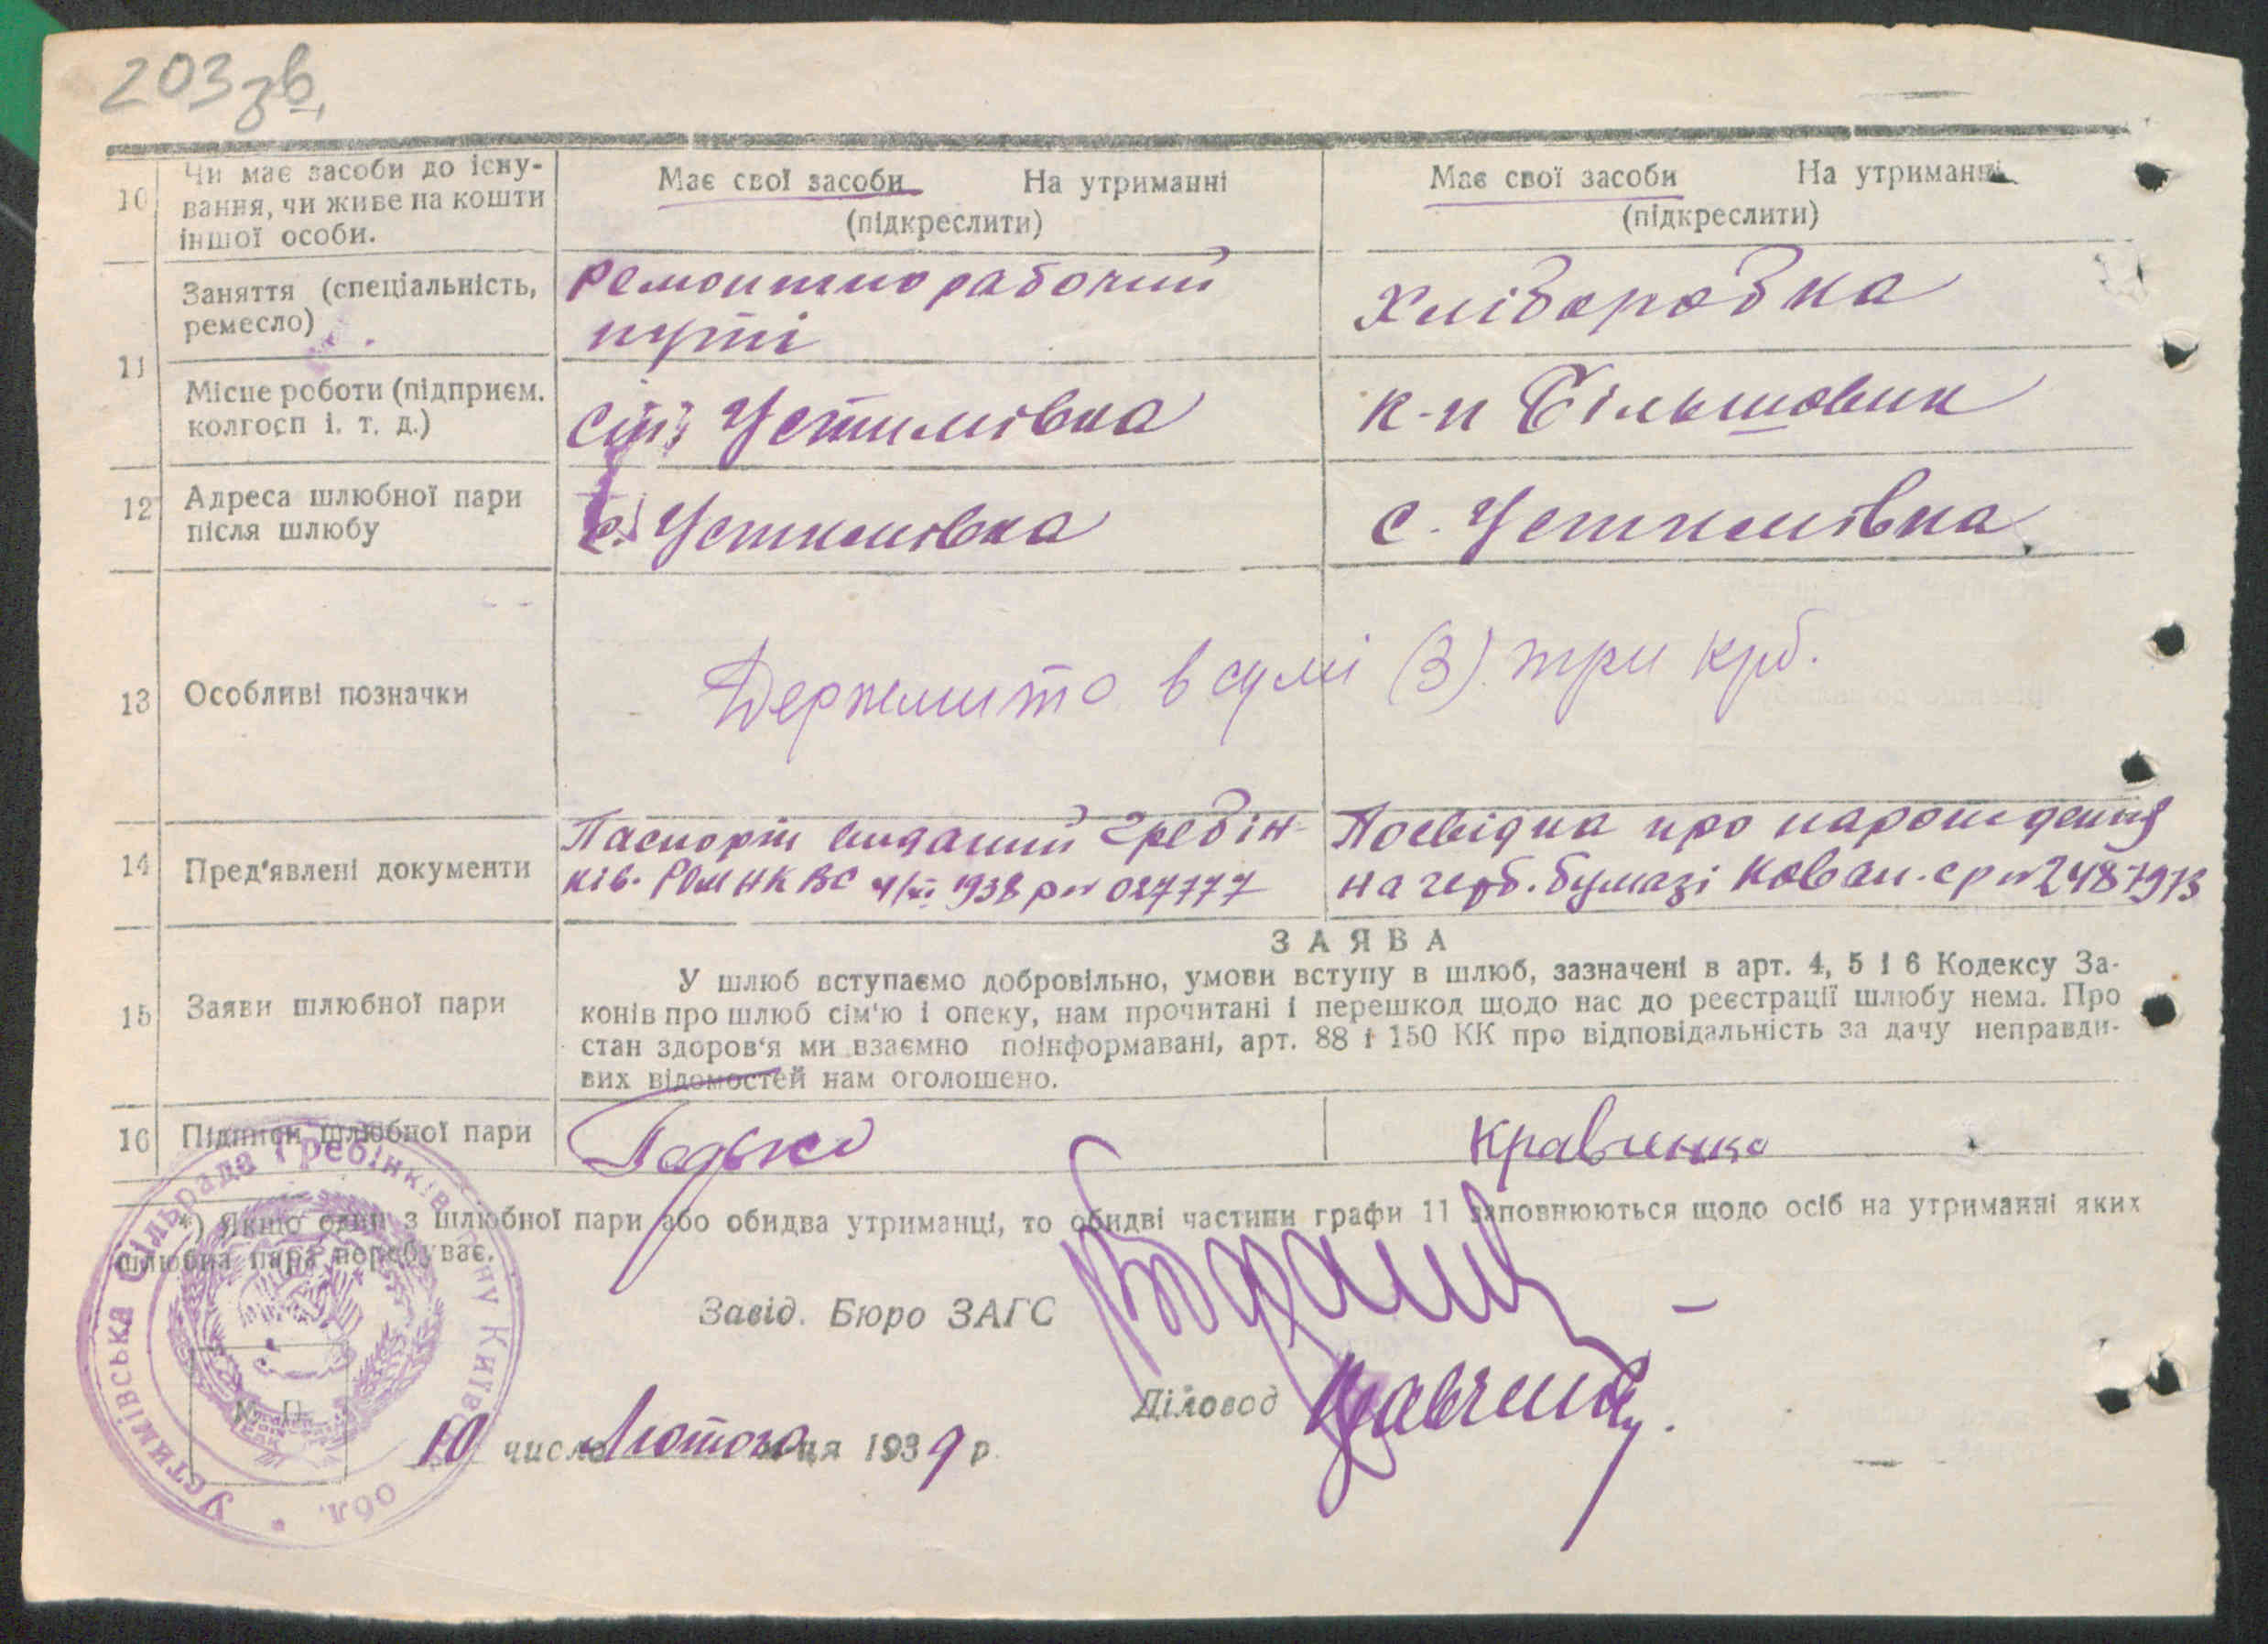 203 зв.
10 Чи має засоби до існу-
вання, чи живе на кошти
іншої особи.
Має свої засоби На утриманні
(підкреслити)
Має свої засоби На утриманні
(підкреслити)
11 Заняття (спеціальність,
ремесло)
Ремонтно рабочий
путі
Хліборобка
Місце роботи (підприєм.
колгосп і. т. д.)
Устимівка
к-п Більшовик
12 Адреса шлюбної пари
після шлюбу
с. Устимівка
с. Устимівка
13 Особливі позначки
Держмито в сумі (3) три крб.
14 Пред'явлені документи
Паспорт виданий Гребін-
ків. РОМ НКВС 1938 р № 027777
Посвідка про нарождення
на герб. бумазі № 2487973
15 Заяви шлюбної пари
ЗАЯВА
У шлюб вступаємо добровільно, умови вступу в шлюб, зазначені в арт. 4, 5 і 6 Кодексу За-
конів про шлюб сім'ю і опеку, нам прочитані і перешкод щодо нас до реєстрації шлюбу нема. Про
стан здоров'я ми взаємно поінформавані, арт. 88 і 150 КК про відповідальність за дачу неправди-
вих відомостей нам оголошено.
16 Підписи шлюбної пари
Кравченко
*) Якщо один з шлюбної пари або обидва утриманці, то обидві частини графи 11 заповнюються щодо осіб на утриманні яких
шлюбна пара перебуває.
Завід. Бюро ЗАГС
Діловод Кравченко
М. П.
10 число Лютого м-ця 1939 р.
Устимівська Сільрада Гребінків. р-ну Київської обл.